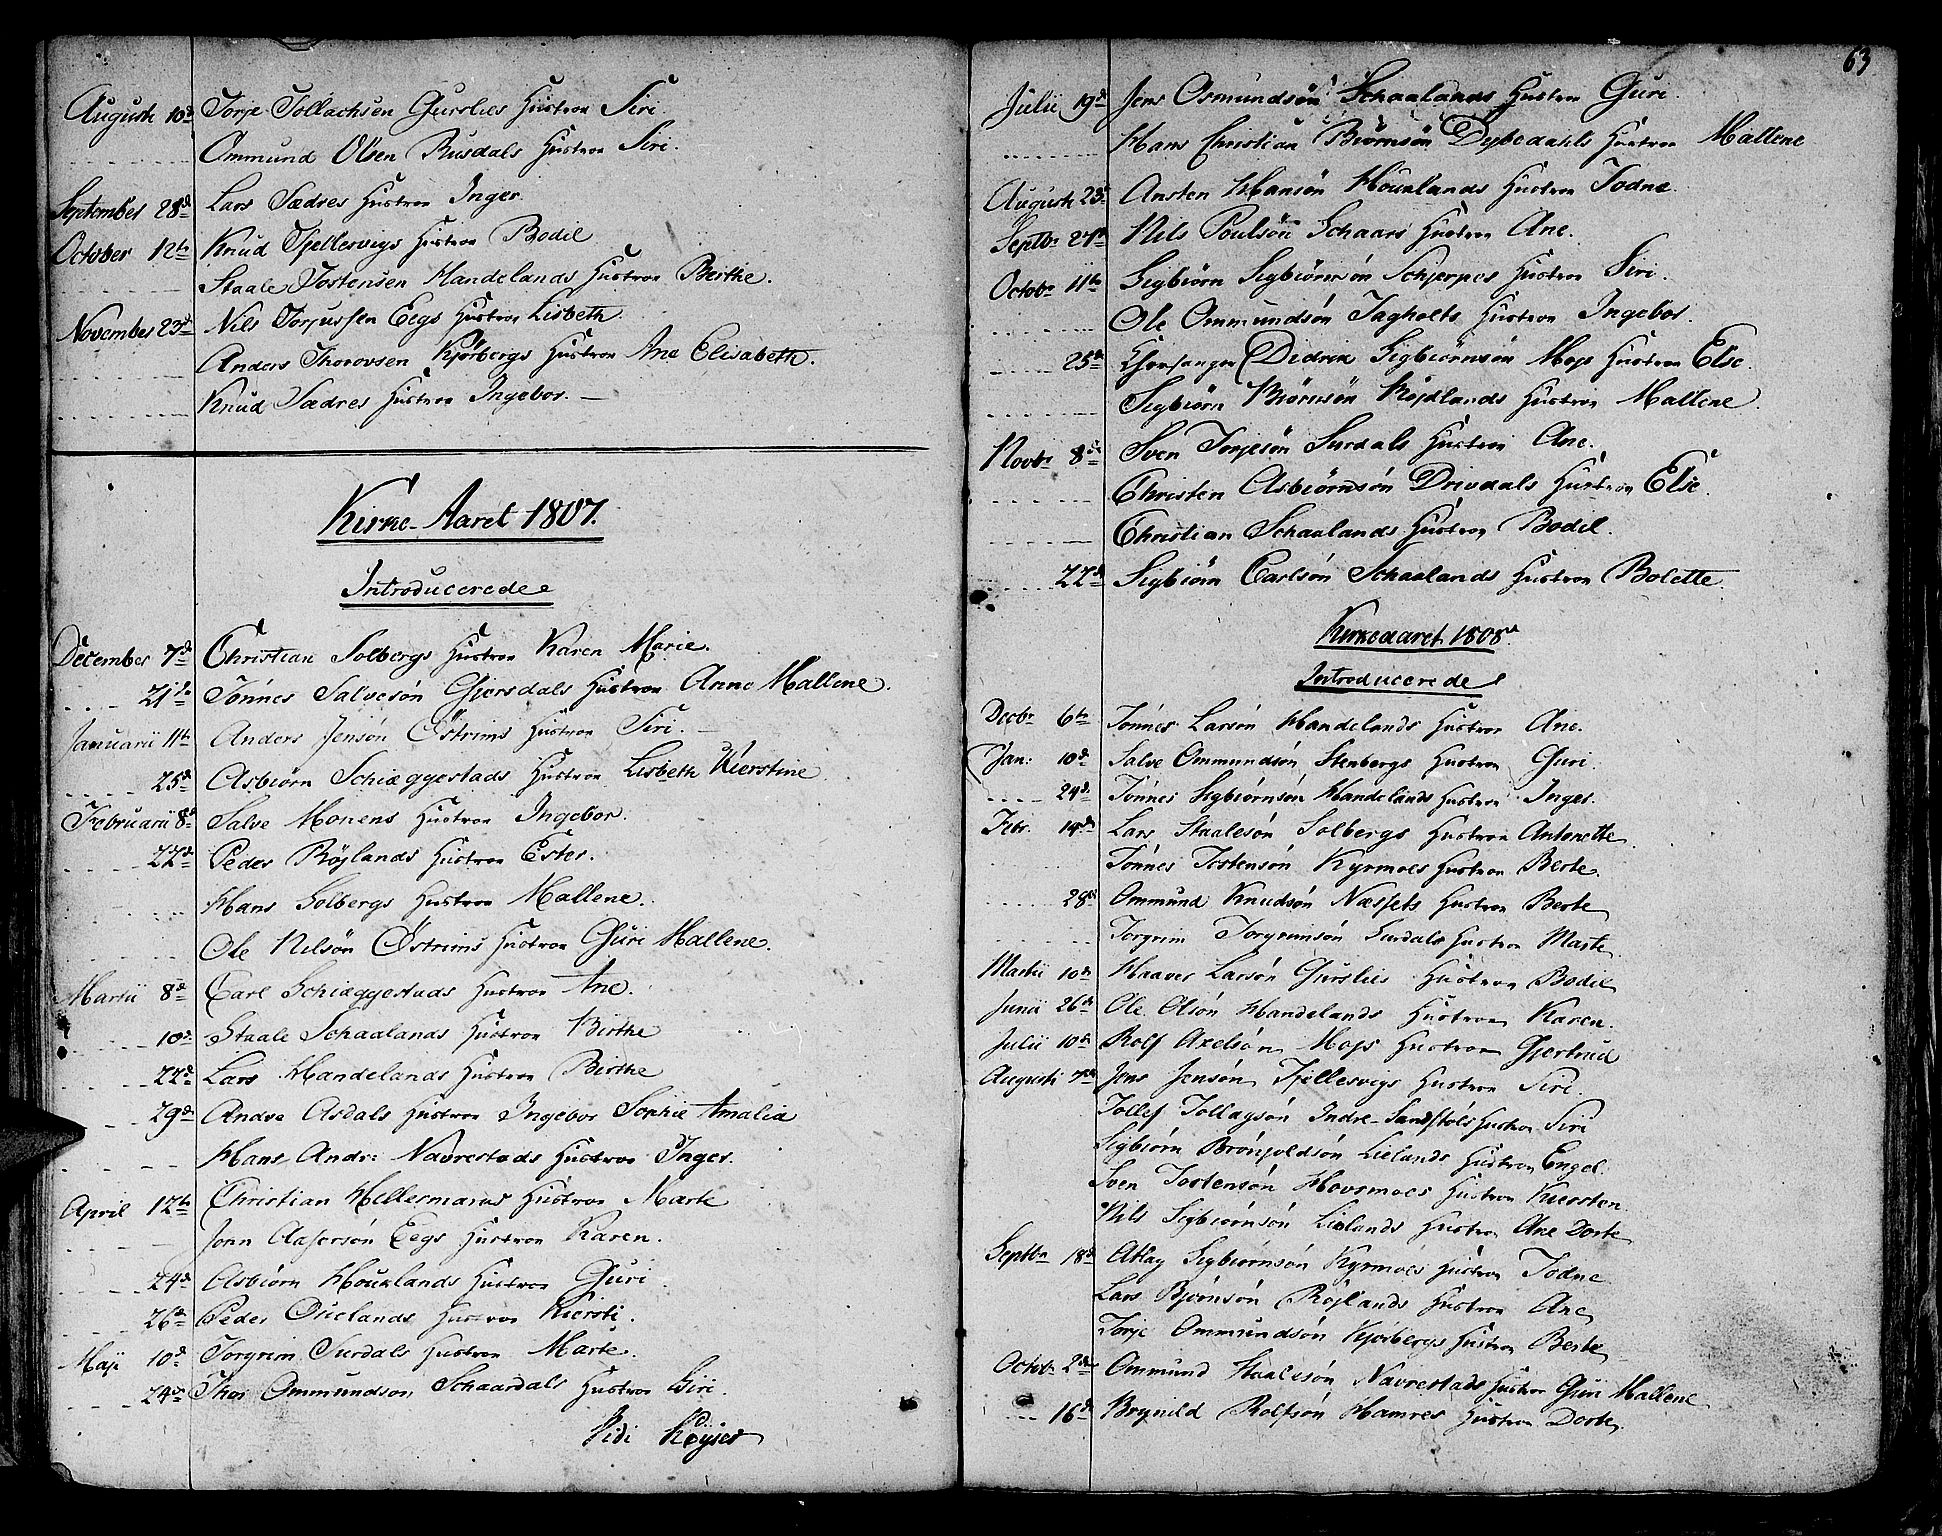 Augusti 10d Torje Tollachsen Gurslies Hustroe Siri
Ommund Olsen Rusdals Hustroe Siri.
September 28d Lars Sædres Hustroe Inger.
October 12te Knud Tjellesvigs Hustroe Bodil
Staale Tostensen Handelands Hustroe Berthe.
November 23d Nils Torjussen Eegs Hustroe Lisbeth
Anders Thorovsen Kjörbergs Hustroe Ane Elisabeth.
Knud Sædres Hustroe Ingebor. —
Kirke-Aaret 1807.
Introducerede
December 7de Christian Solbergs Hustroe Karen Marie.
21de Tönnes Salvesön Gjersdals Hustroe Anne Mallene.
Januarii 11te Anders Jensön Östrims Hustroe Siri. —
25de Asbiörn Schiæggestads Hustroe Lisbeth Kierstine
Februarii 8d Salve Monens Hustroe Ingebor.
22de Peder Röjlands Hustroe Ester.
Hans Solbergs Hustroe Mallene.
Ole Nilsön Östrims Hustroe Guri Mallene.
Martii 8d Carl Schiæggestads Hustroe Ane.
10de Staale Schaalands Hustroe Birthe
22de Lars Handelands Hustroe Birthe
29de Andrea Asdals Hustroe Ingebor Sophie Amalia
Hans Andr: Navrestads Hustroe Inger.
April 12te Christian Hellermarns Hustroe Marte
John Aasersön Eegs Hustroe Karen.
24de Asbiörn Houklands Hustroe Guri
26de Peder Ouelands Hustroe Kiersti.
Maji 10de Torgrim Surdals Hustroe Marte.
24de Thor Ommundson Schaardals Hustroe Siri.
Vidi Köyser
63
Julii 19de Jens Osmundsön Schaalands Hustroe Guri
Hans Christian Biörnsön Dybedahls Hustroe Mallene
Augusti 23d Ansten Hansön Houklands Hustroe Todne
Septbr 27de Nils Poulsön Schaars Hustroe Ane.
Octobr 11te Sigbiörn Sigbiörnsön Schjerpes Hustroe Siri.
Ole Ommundsön Tagholts Hustroe Ingebor.
25de Didrik Sigbiörnsön Mojs Hustroe Else.
Sigbiörn Biörnsön Röjdlands Hustroe Mallene.
Novbr 8de Sven Torjesön Surdals Hustroe Ane.
Christen Asbiörnsön Drivdals Hustroe Else.
Christian Schaalands Hustroe Bodil.
22de Sigbiörn Carlsön Schaalands Hustroe Bolette
Kirkeaaret 1808
Introducerede
Decbr 6te Tönnes Larsön Handelands Hustroe Ane.
Jan: 10de Salve Ommundsön Stenbergs Hustroe Guri.
24de Tönnes Sigbiörnsön Handelands Hustroe Inger.
Febr. 14de Lars Staalesön Solbergs Hustroe Antonette
Tönnes Tostensön Kyrmoes Hustroe Berte.
28de Ommund Knudsön Næssets Hustroe Berte
Torgrim Torgrimsön Surdals Hustroe Marte
Martii 10de Haaver Larsön Gurslies Hustroe Bodil
Junii 26de Ole Olsön Handelands Hustroe Karen.
Julii 10de Rolf Axelsön Mojs Hustroe Gjertrud
Augusti 7de Jens Jensön Tjellesvigs Hustroe Siri.
Tollef Tollagsön Indre-Sandstöls Hustroe Siri
Sigbiörn Brönjoldsön Lielands Hustroe Engel.
Sven Tostensön Hovsmoes Hustroe Kiersten
Nils Sigbiörnsön Lielands Hustroe Ane Dorte
Septbr 18de Atlag Sigbiörnsön Kyrmoes Hustroe Todne
Lars Bjönsön Röjlands Hustroe Ane
Torje Ommundsön Kjörbergs Hustroe Berte
Octobr 2den Ommund Staalesön Navrestads Hustroe Guri Mallene
16de Brynild Rolfsön Hamres Hustroe Dorte